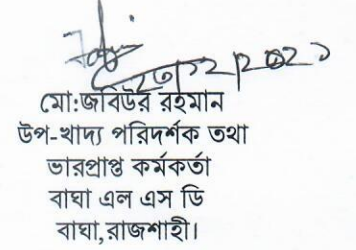 ২৩/১২/২০২১
মো:জবিউর রহমান
উপ-খাদ্য পরিদর্শক তথা
ভারপ্রাপ্ত কর্মকর্তা
বাঘা এল এস ডি
বাঘা,রাজশাহী।